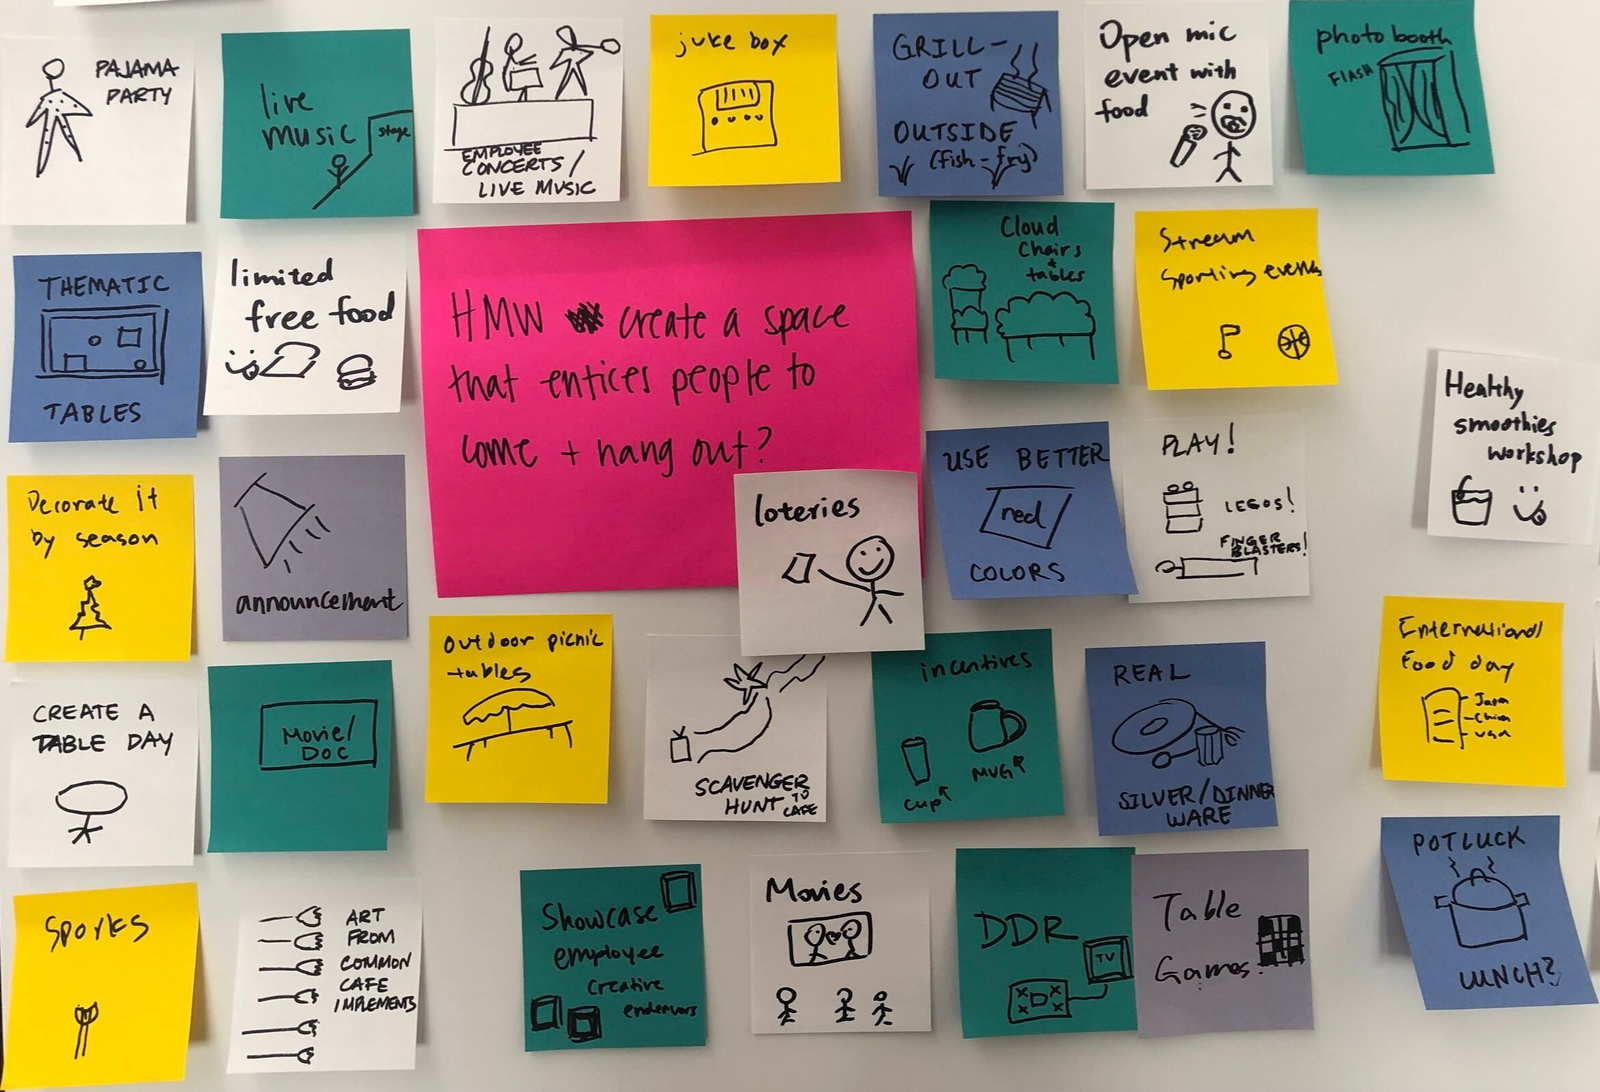 PAJAMA
PARTY
live
music
stage
EMPLOYEE
CONCERTS/
LIVE MUSIC
juke box
GRILL-
OUT
OUTSIDE
(fish-fry)
Open mic
event with
food
photo booth
FLASH
THEMATIC
TABLES
limited
free food
HMW create a space
that entices people to
come + hang out?
Cloud
Chairs
+
tables
Stream
Sporting events
Healthy
smoothies
workshop
Decorate it
by season
announcement
loteries
USE BETTER
red
COLORS
PLAY!
LEGOS!
FINGER
BLASTERS!
CREATE A
TABLE DAY
Movie/
DOC
outdoor picnic
tables
SCAVENGER
HUNT TO
CAFE
incentives
cup
MUG
REAL
SILVER/DINNER
WARE
Enternational
Food day
Japan
China
USA
Sporks
ART
FROM
COMMON
CAFE
IMPLEMENTS
Showcase
employee
creative
endeavors
Movies
DDR
TV
Table
Games
POTLUCK
LUNCH?